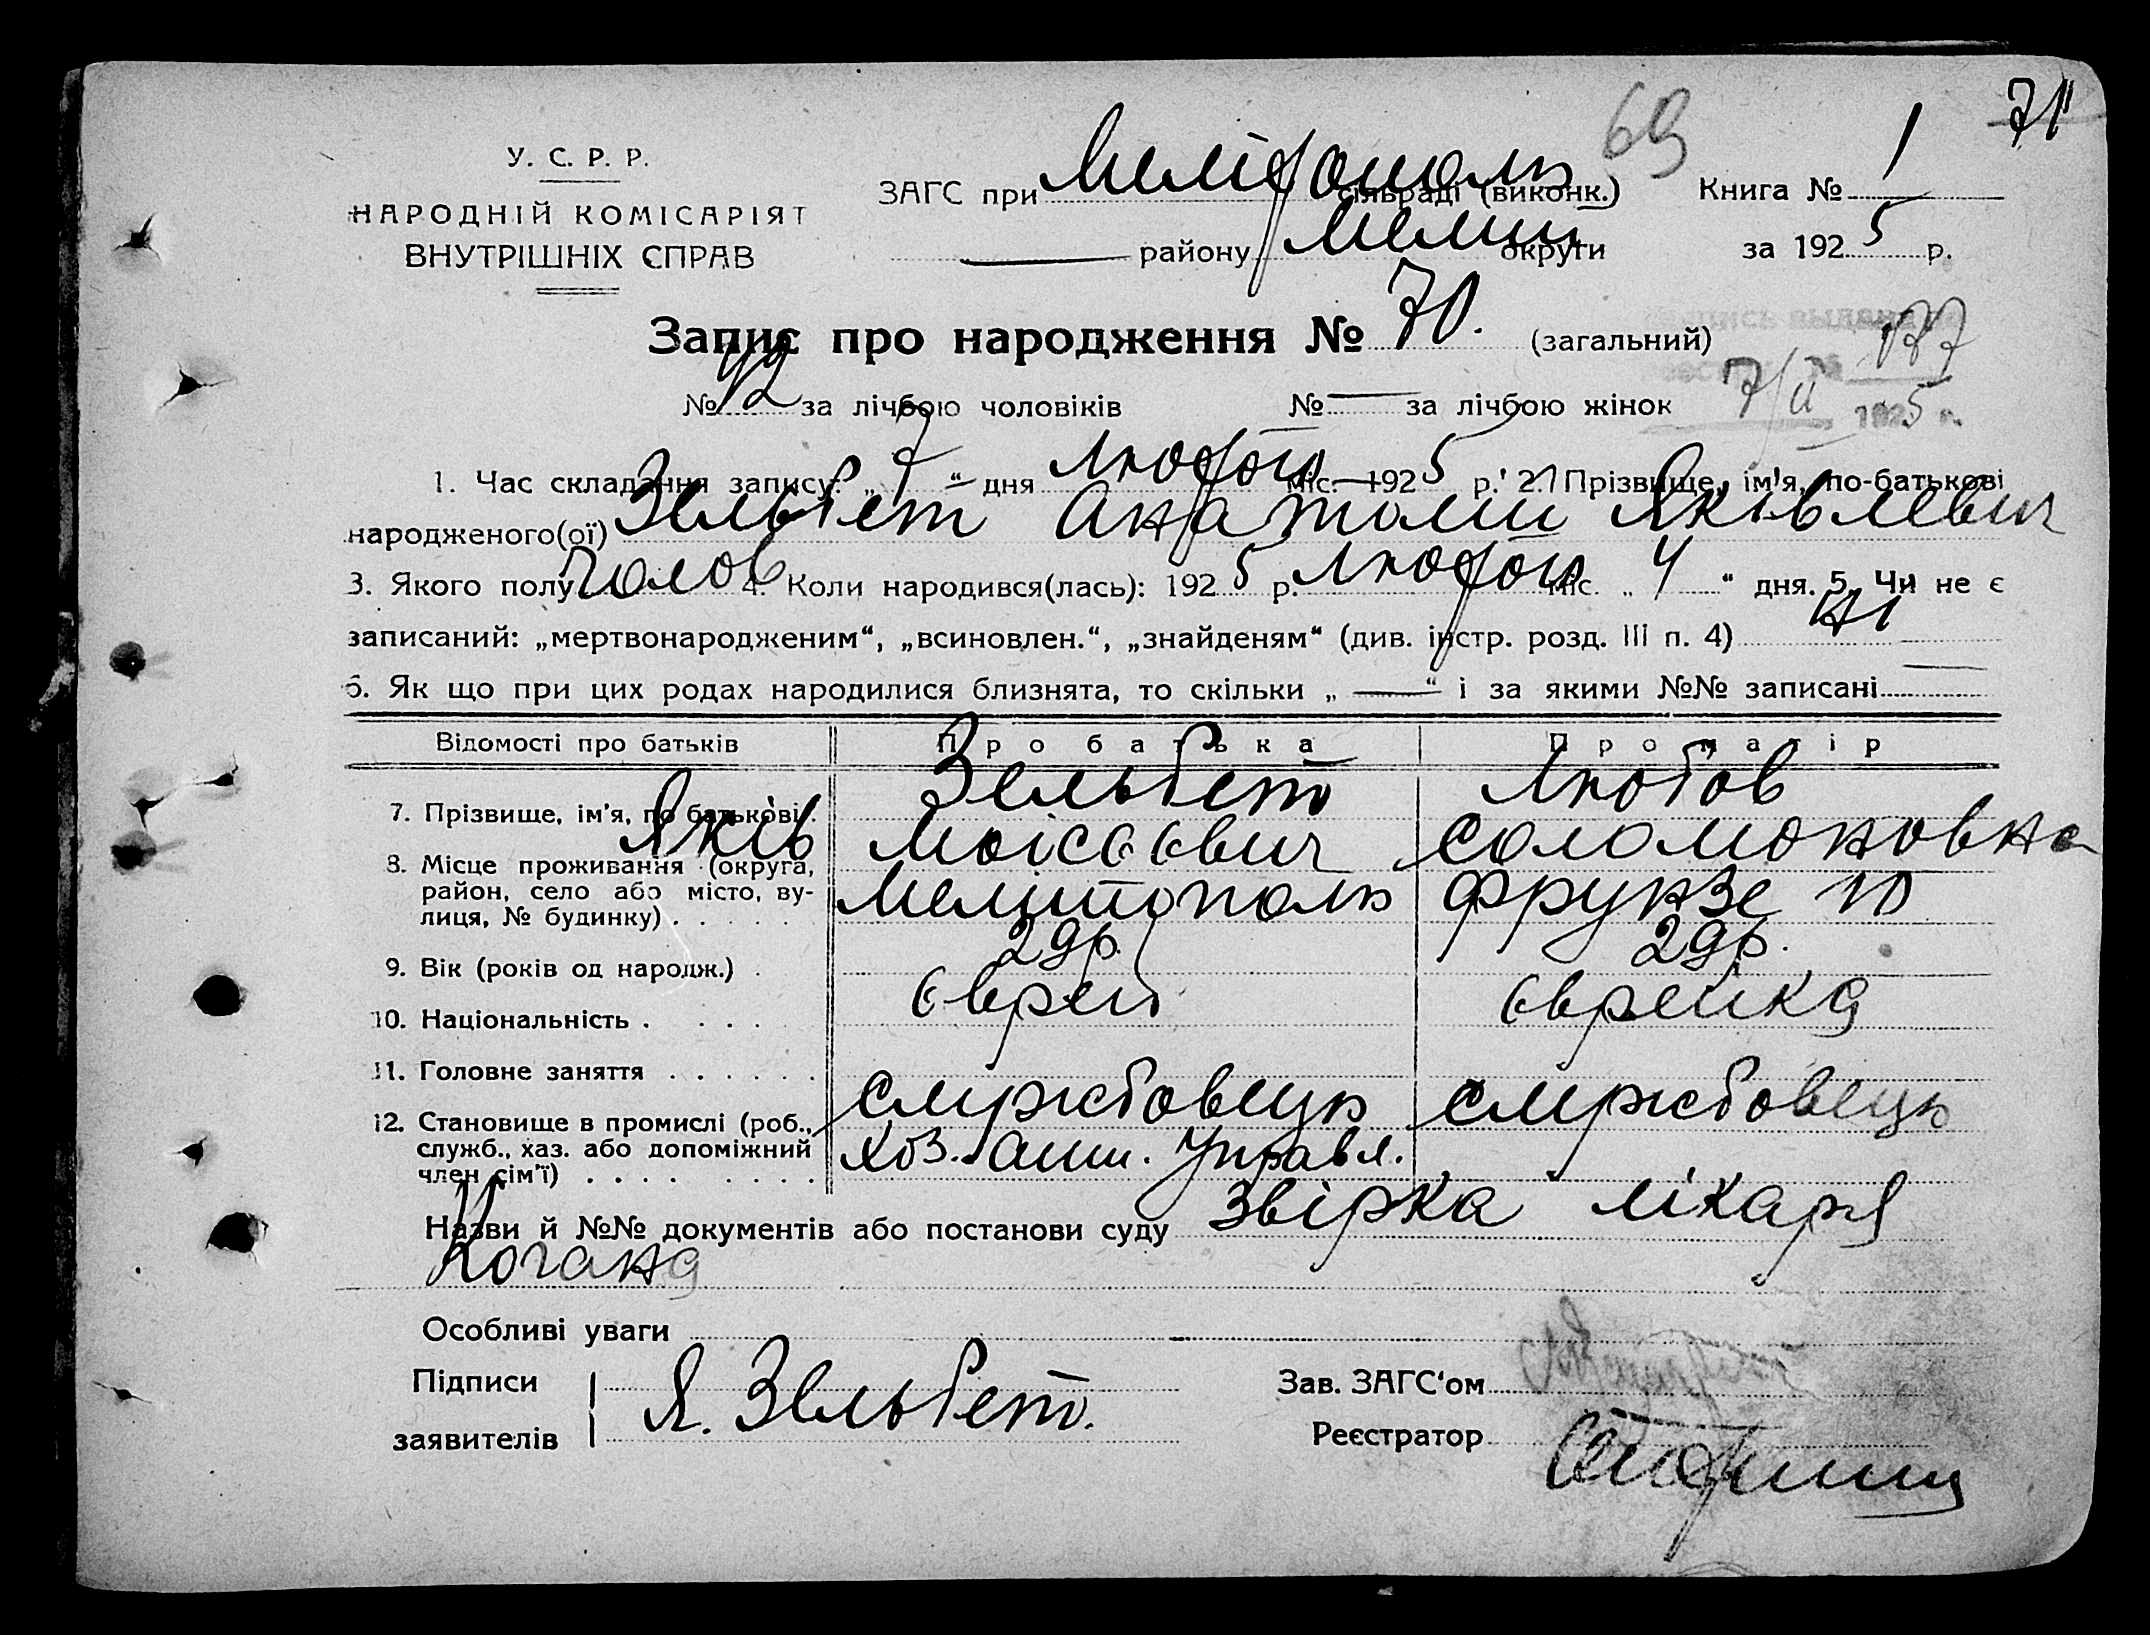 71
69
У. С. Р. Р.
НАРОДНІЙ КОМІСАРІЯТ
ВНУТРІШНІХ СПРАВ
ЗАГС при Меліtополь сільраді (виконк.) Книга № 1
району Мелит округи за 1925 р.
Запис про народження № 70. (загальний)
187
№ 42 за лічбою чоловіків № — за лічбою жінок
7/II 1925 г.
1. Час складання запису: „7“ дня Лютого міс. 1925 р. 2. Прізвище, ім'я, по-батькові
народженого(ої) Зельбет Анатолий Яківлевич
3. Якого полу Чолов 4. Коли народився(лась): 1925 р. Лютого міс. „4“ дня. 5. Чи не є
записаний: „мертвонародженим“, „всиновлен.“, „знайденям“ (див. інстр. розд. III п. 4) Ні
6. Як що при цих родах народилися близнята, то скільки „ — “ і за якими №№ записані —
Відомості про батьків Про батька Про матір
7. Прізвище, ім'я, по батькові . Зельбет Любов
Яків Моісєєвич Соломоновна
8. Місце проживання (округа, район, село або місто, ву-
лиця, № будинку) . . . . . Мелитополь Фрунзе 10
9. Вік (років од народж.) . 29р. 29р.
10. Національність . . . . Єврей Єврейка
11. Головне заняття . . . . . . Службовець Службовець
12. Становище в промислі (роб.,
служб., хаз. або допоміжний Хоз. Управл.
член сім'ї) . . . . . . . .
Назви й №№ документів або постанови суду Звірка лікаря
Когана
Особливі уваги
Підписи Я. Зельбет. Зав. ЗАГС‘ом
заявителів Реєстратор